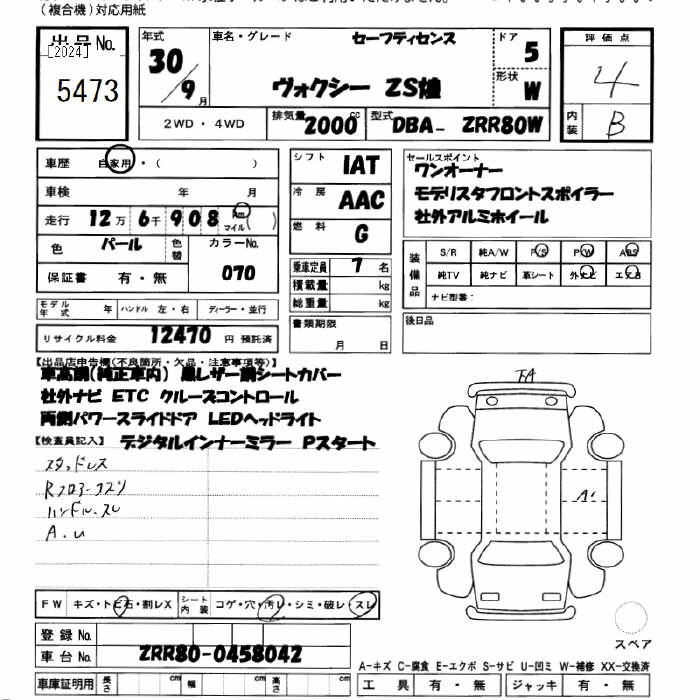 (複合機)対応用紙
出品No.
[2024]
5473
年式
30/9月
車名・グレード
セーフティセンス
ヴォクシー ZS煌
ドア
5
形状
W
評価点
4
内装
B
2WD・4WD
排気量
2000cc
型式
DBA- ZRR80W
車歴 自家用・( )
車検 年 月
走行 12万 6千 908 Km マイル ( )
色 パール
色替
カラーNo.
070
保証書 有・無
モデル年式 年
ハンドル 左・右
ディーラー・並行
リサイクル料金 12470 円 預託済
シフト
IAT
冷房
AAC
燃料
G
乗車定員 7 名
積載量 kg
総重量 kg
書類期限
月 日
セールスポイント
ワンオーナー
モデリスタフロントスポイラー
社外アルミホイール
装備品
S/R 純A/W P/S P/W ABS
純TV 純ナビ 革シート 外ナビ エアB
ナビ型番:
後日品
【出品店申告欄(不良箇所・欠品・注意事項等)】
車高調(純正車内) 黒レザー調シートカバー
社外ナビ ETC クルーズコントロール
両側パワースライドドア LEDヘッドライト
【検査員記入】 デジタルインナーミラー Pスタート
スタッドレス
Rフロアーカスリ
ハンドル.スレ
A.u
FA
A1
FW キズ・トビ石・割レX
シート内装 コゲ・穴・汚レ・シミ・破レ・スレ
登録No.
車台No. ZRR80-0458042
車庫証明用 長さ cm 幅 cm 高さ cm
スペア
A-キズ C-腐食 E-エクボ S-サビ U-凹ミ W-補修 XX-交換済
工具 有・無 ジャッキ 有・無